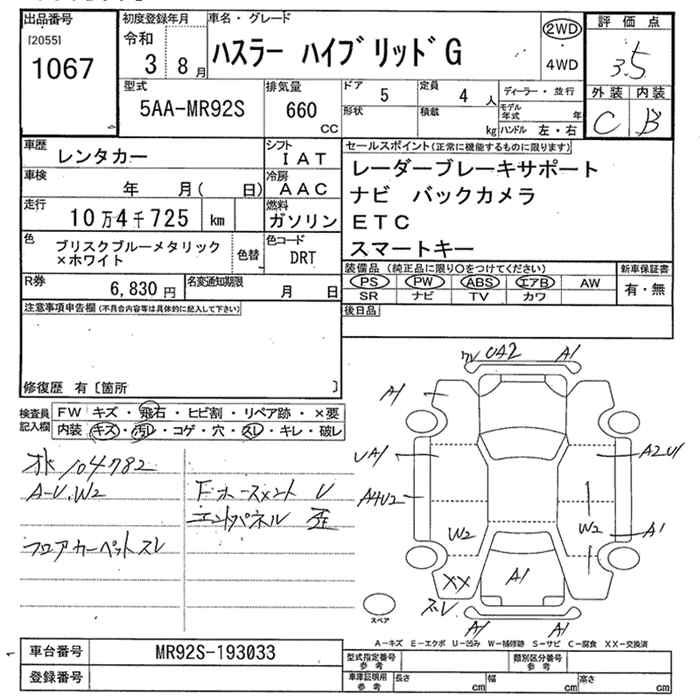 出品番号
[2055]
1067
初度登録年月
令和
3 8月
車名・グレード
ハスラー ハイブリッドG
2WD
4WD
評価点
3.5
外装 内装
C B
型式
5AA-MR92S
排気量
660
CC
ドア
5
定員
4 人
形状
積載
kg
ディーラー・並行
モデル年式 年
ハンドル 左・右
車歴
レンタカー
シフト
IAT
車検
年 月( 日)
冷房
AAC
走行
10万4千725 km
燃料
ガソリン
色
ブリスクブルーメタリック
×ホワイト
色替
色コード
DRT
R券
6,830円
名変通知期限
月 日
セールスポイント(正常に機能するものに限ります)
レーダーブレーキサポート
ナビ バックカメラ
ETC
スマートキー
装備品 (純正品に限り○をつけてください)
PS PW ABS エアB AW
SR ナビ TV カワ
新車保証書
有・無
後日品
注意事項申告欄(不具合内容等は具体的に記入して下さい)
修復歴 有〔箇所 〕
検査員記入欄
FW キズ・飛石・ヒビ割・リペア跡・×要
内装 キズ・汚レ・コゲ・穴・スレ・キレ・破レ
104782
A-U.W2
フロアカーペットスレ
Fホースメント U
エンドパネル 歪
ワレ UA2 A1
A1
UA1
A2U1
A4U2
W2
W2
A1
XX
A1
スレ
A1
A1
スペア
A-キズ E-エクボ U-凹み W-補修跡 S-サビ C-腐食 XX-交換済
車台番号
MR92S-193033
登録番号
型式指定番号参考
類別区分番号参考
車庫証明用参考
長さ cm
幅 cm
高さ cm